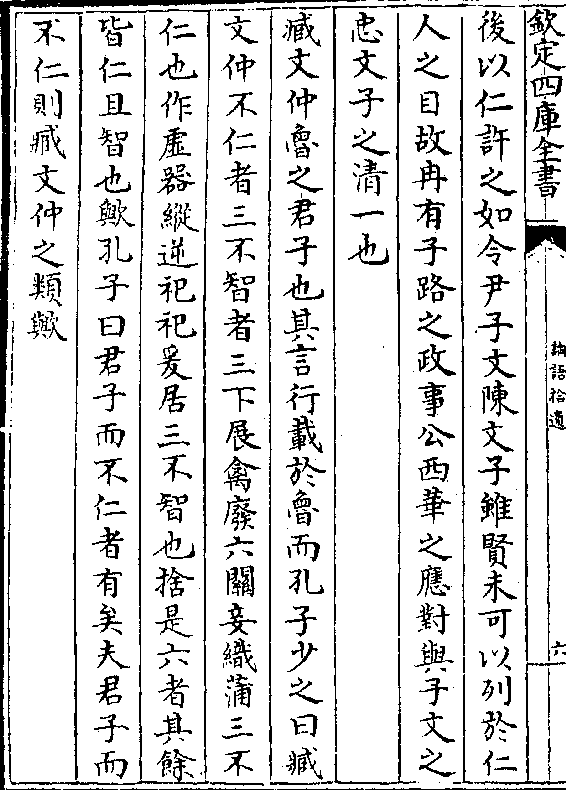 欽定四庫全書
論語拾遺
六
後以仁許之如令尹子文陳文子雖賢未可以列於仁
人之目故冉有子路之政事公西華之應對與子文之
忠文子之清一也
臧文仲魯之君子也其言行載於魯而孔子少之曰臧
文仲不仁者三不智者三下展禽廢六關妾織蒲三不
仁也作虛器縱逆祀祀爰居三不智也捨是六者其餘
皆仁且智也歟孔子曰君子而不仁者有矣夫君子而
不仁則臧文仲之類歟